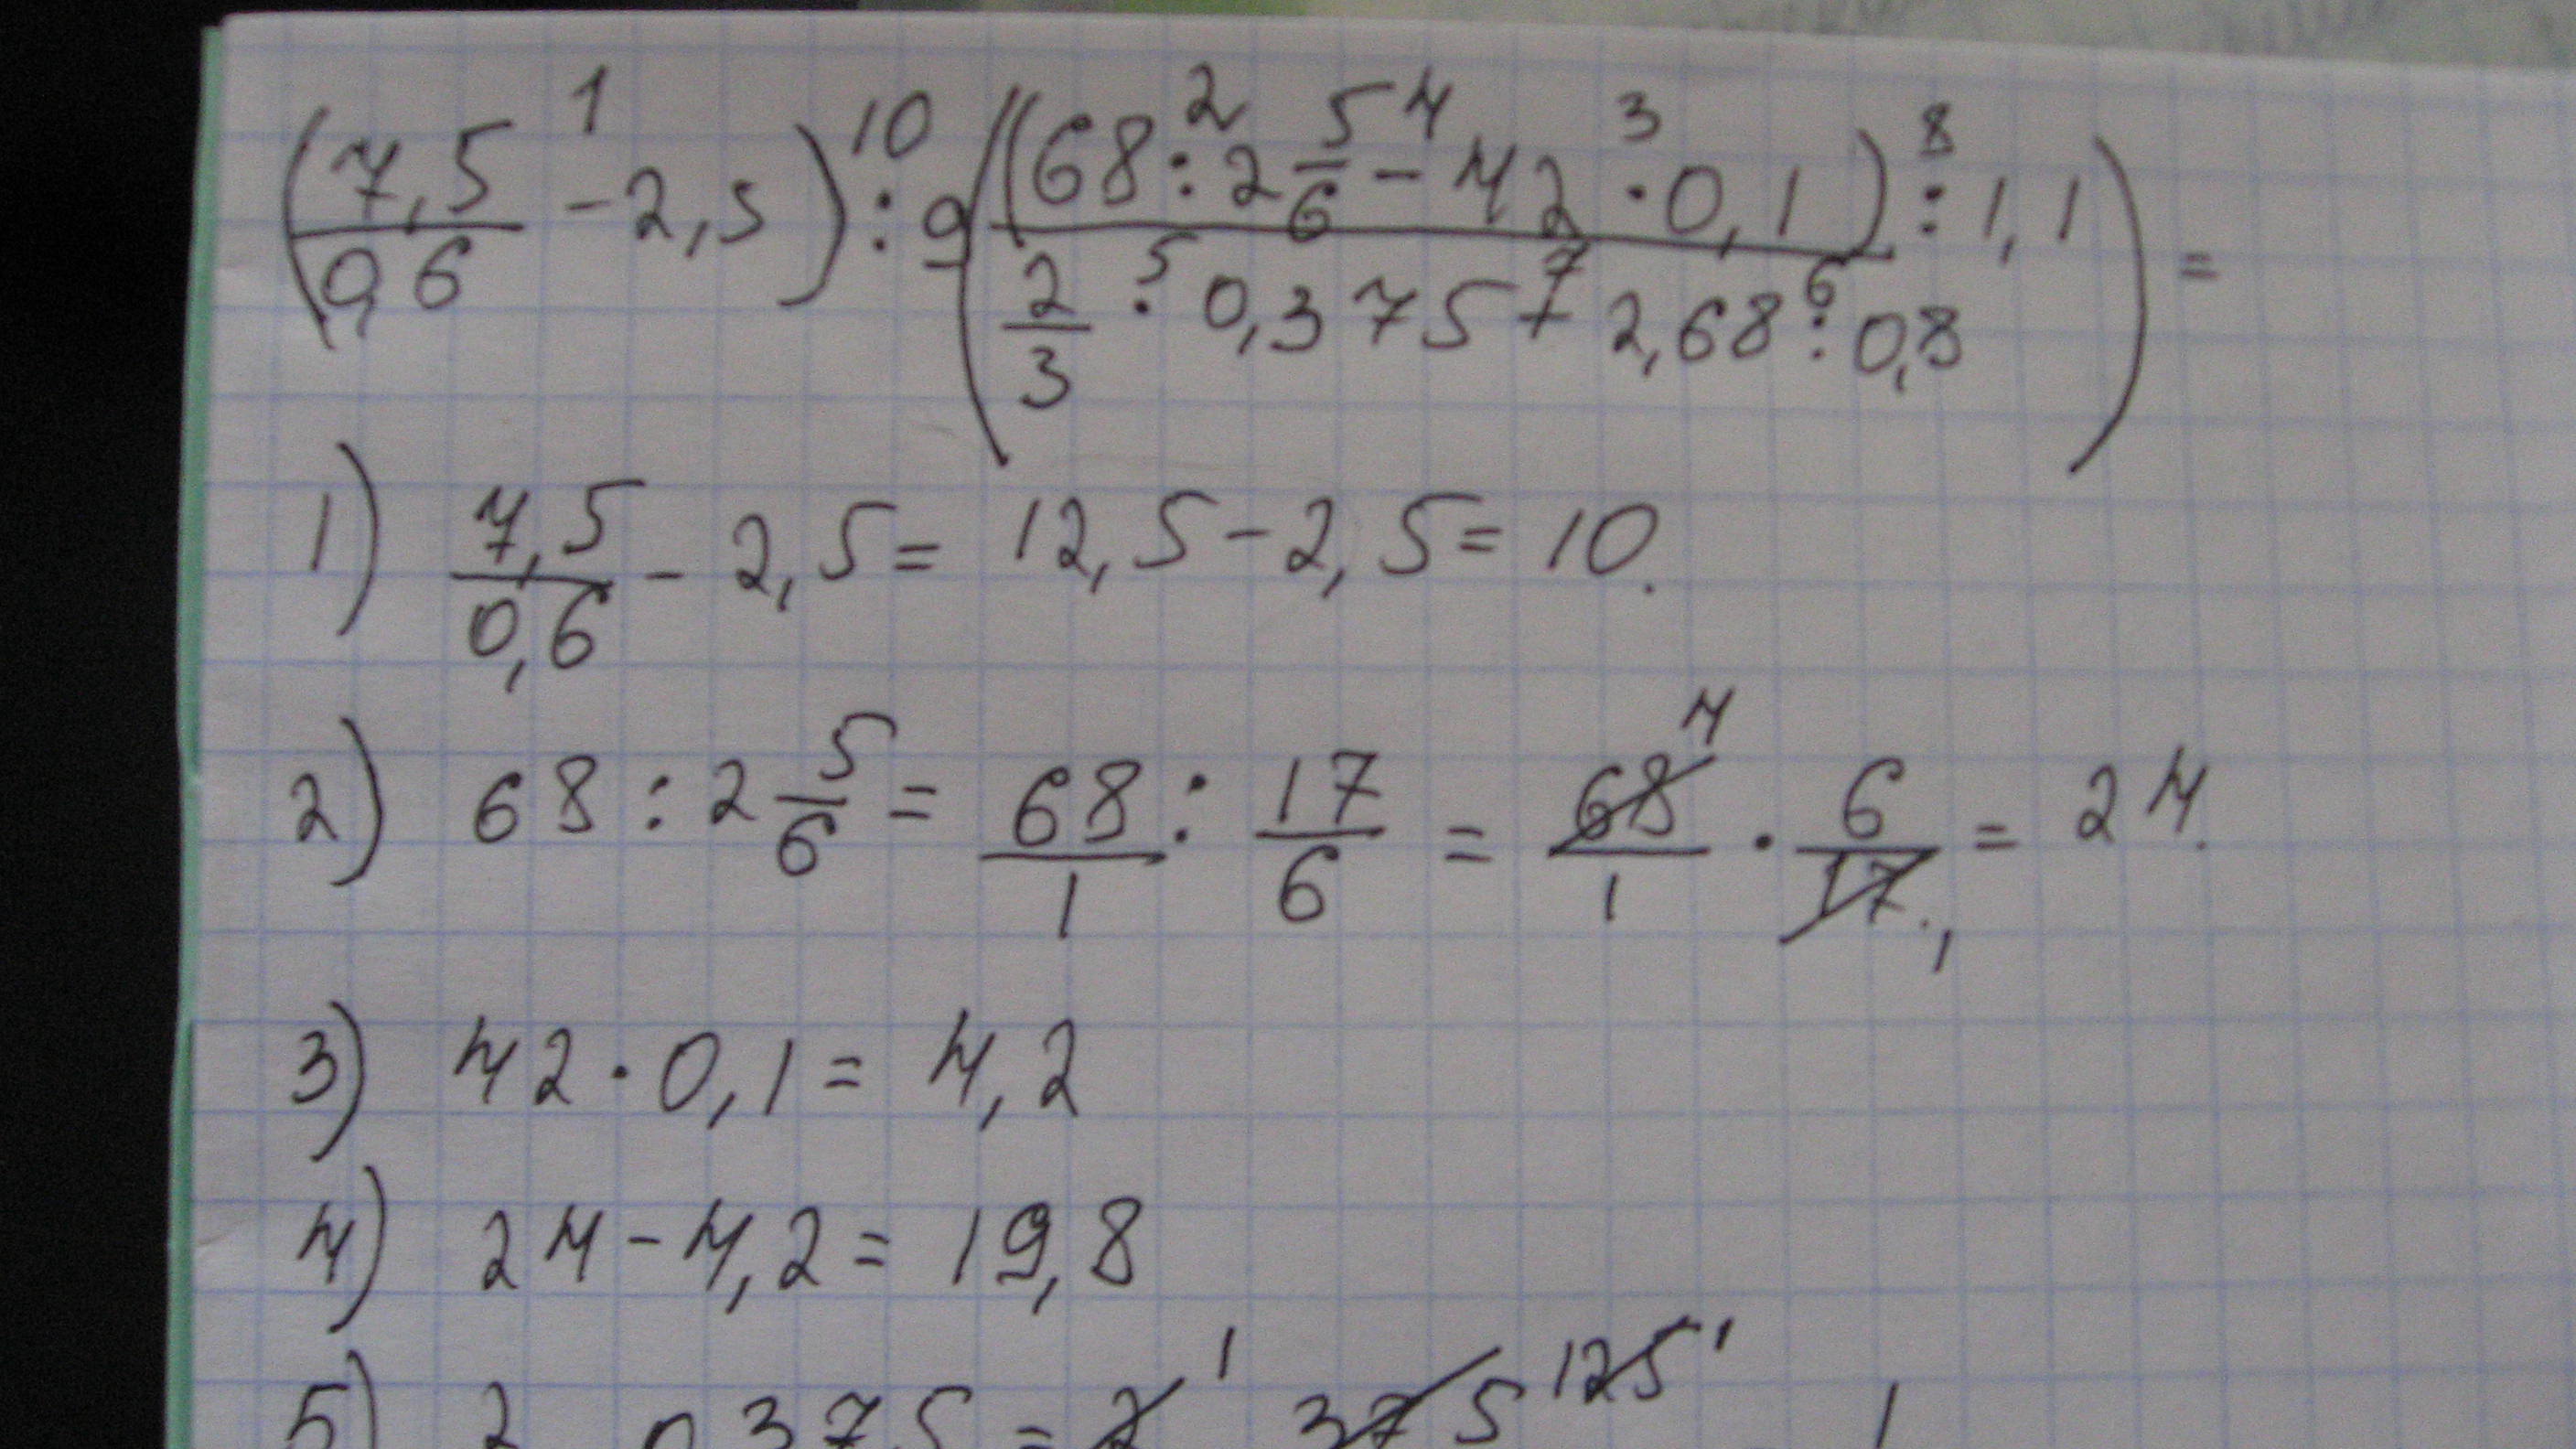 (7,5/0,6 - 2,5) : ((68 : 2 5/6 - 42 · 0,1) : 1,1 / 2/3 · 0,375 + 2,68 : 0,8) =
1) 7,5/0,6 - 2,5 = 12,5 - 2,5 = 10.
2) 68 : 2 5/6 = 68/1 : 17/6 = 68/1 · 6/17 = 24.
3) 42 · 0,1 = 4,2
4) 24 - 4,2 = 19,8
5) 2 0,375 = 2 1 375 125 1 1